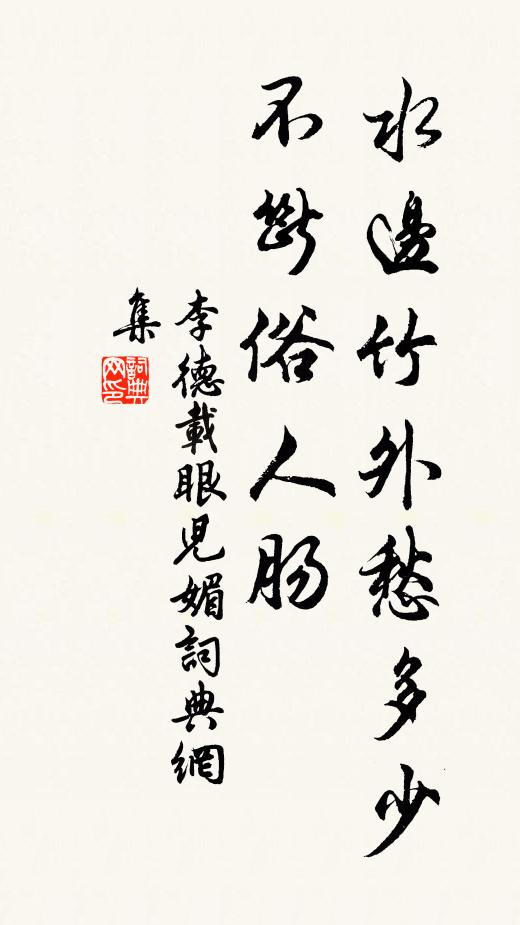 水邊竹外愁多少
不斷俗人肠
李德載眼児媚詞典網
集
詞典
网印